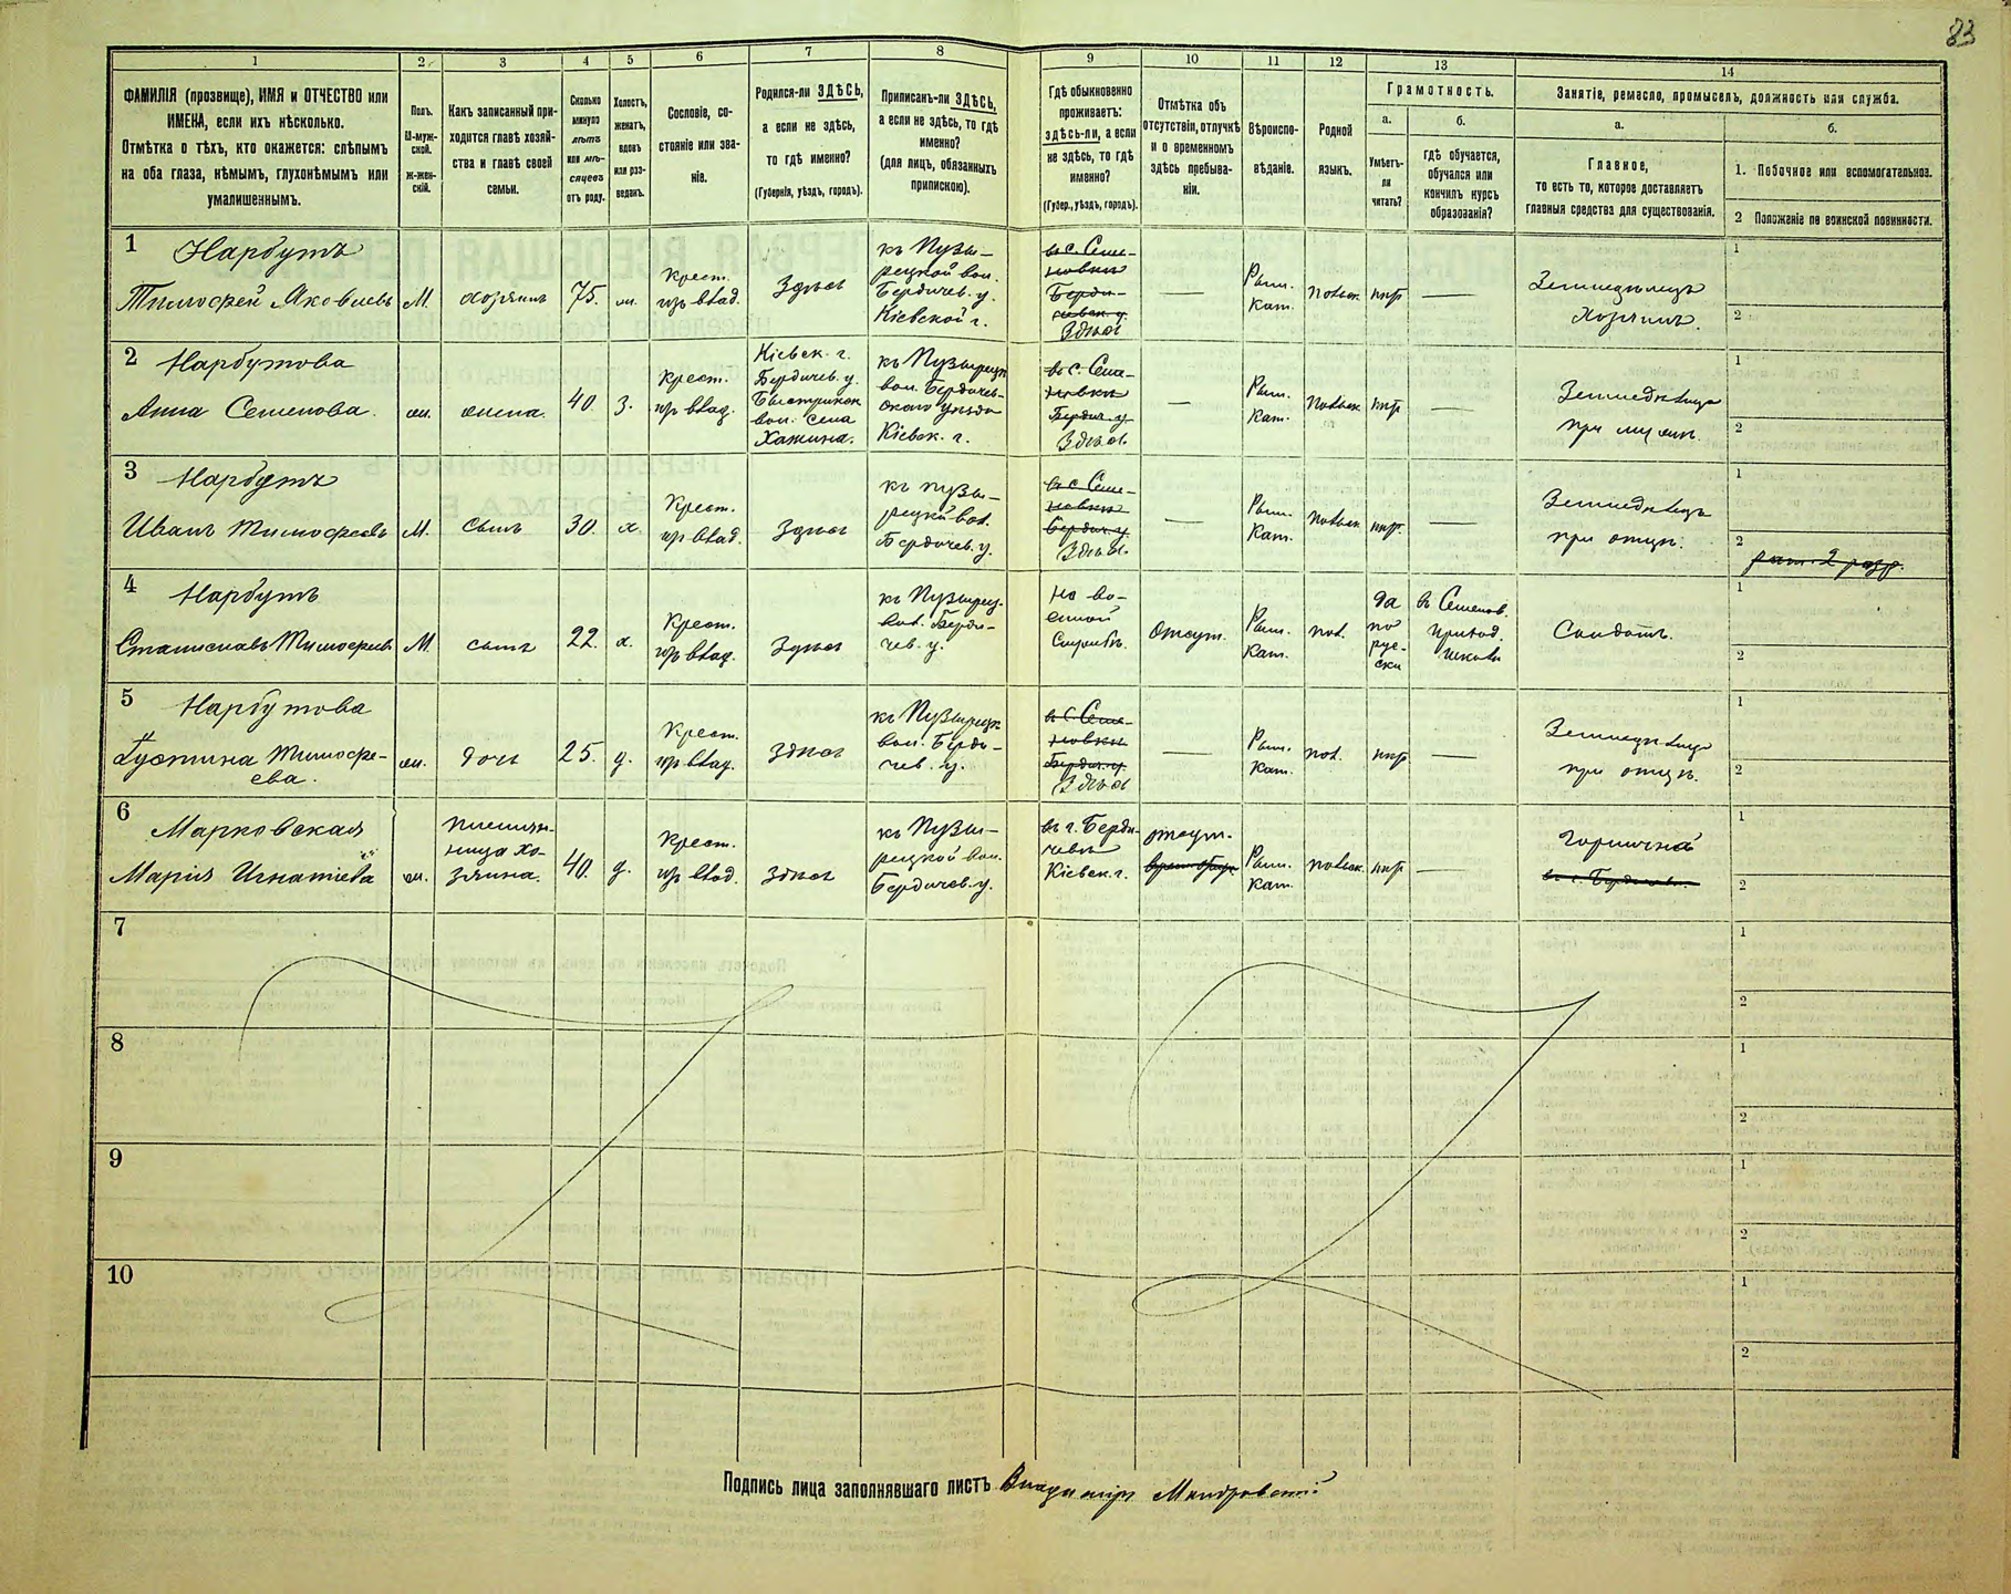 83
1
2
3
4
5
6
7
8
9
10
11
12
13
14
ФАМИЛІЯ (прозвище), ИМЯ и ОТЧЕСТВО или
ИМЕНА, если ихъ нѣсколько.
Отмѣтка о тѣхъ, кто окажется: слѣпымъ
на оба глаза, нѣмымъ, глухонѣмымъ или
умалишеннымъ.
Полъ.
М-муж-
ской.
ж-жен-
скій.
Какъ записанный при-
ходится главѣ хозяй-
ства и главѣ своей
семьи.
Сколько
минуло
лѣтъ
или мѣ-
сяцевъ
отъ роду.
Холостъ,
женатъ,
вдовъ
или раз-
веденъ.
Сословіе, со-
стояніе или зва-
ніе.
Родился-ли ЗДѢСЬ,
а если не здѣсь,
то гдѣ именно?
(Губернія, уѣздъ, городъ).
Приписанъ-ли ЗДѢСЬ,
а если не здѣсь, то гдѣ
именно?
(для лицъ, обязанныхъ
припискою).
Гдѣ обыкновенно
проживаетъ:
здѣсь-ли, а если
не здѣсь, то гдѣ
именно?
(Губер., уѣздъ, городъ).
Отмѣтка объ
отсутствіи, отлучкѣ
и о временномъ
здѣсь пребыва-
ніи.
Вѣроиспо-
вѣданіе.
Родной
языкъ.
Грамотность.
а.
Умѣетъ-
ли
читать?
б.
гдѣ обучается,
обучался или
кончилъ курсъ
образованія?
Занятіе, ремесло, промыселъ, должность или служба.
а.
Главное,
то есть то, которое доставляетъ
главныя средства для существованія.
б.
1. Побочное или вспомогательное.
2 Положеніе по воинской повинности.
1
Нарбутъ
Тимофей Яковлевъ
М.
хозяинъ
75.
Крест.
изъ влад.
Здѣсь
къ Пузы-
рецкой вол.
Бердичев. у.
Кіевской г.
въ с. Семе-
новкѣ
Берди-
Здѣсь
—
Рим.
Кат.
польск.
нѣт
—
Земледѣлецъ
Хозяинъ.
1
2
2
Нарбутова
Анна Семенова.
жена.
40.
з.
Крест.
изъ влад.
Кіевск. г.
Бердичев. у.
вол. села
Хажина.
къ Пузырецк
вол. Бердичев-
скаго уѣзда
Кіевск. г.
въ с. Семе-
новкѣ
Бердич. у.
Здѣсь.
—
Рим.
Кат.
польск
нѣт
—
при мужѣ.
1
2
3
Нарбутъ
Иванъ Тимофеевъ
М.
сынъ
30.
х.
Крест.
изъ влад.
Здѣсь
къ Пузы-
рецкой вол.
Бердичев. у.
въ с. Семе-
новкѣ
Бердич. у.
Здѣсь.
—
Рим.
Кат.
польск
нѣт.
—
Земледѣлецъ
при отцѣ.
1
2
рат. 2 разр.
4
Нарбутъ
Станиславъ Тимофеевъ
М.
сынъ
22.
х.
Крест.
изъ влад.
Здѣсь
къ Пузырец.
вол. Берди-
чев. у.
На во-
енной
Службѣ.
Отсут.
Рим.
Кат.
пол.
да
по
рус-
ски
въ Семенов.
приход.
школѣ
Солдатъ.
1
2
5
Нарбутова
Густина Тимофе-
ева.
дочь
25.
д.
Крест.
изъ влад.
Здѣсь
къ Пузырецк
вол. Берди-
чев. у.
въ с. Семе-
новкѣ
Бердич. у.
Здѣсь
—
Рим.
Кат.
пол.
нѣт
—
при отцѣ.
1
2
6
Марковская
Марія Игнатіева
племян-
ница хо-
зяина.
40.
д.
Крест.
изъ влад.
Здѣсь
къ Пузы-
рецкой вол.
Бердичев. у.
въ г. Берди-
чевѣ
Кіевск. г.
отсут.
Рим.
Кат.
польск.
нѣт
—
горничная
въ г. Бердичевѣ.
1
2
7
1
2
8
1
2
9
1
2
10
1
2
Подпись лица заполнявшаго листъ Владиміръ